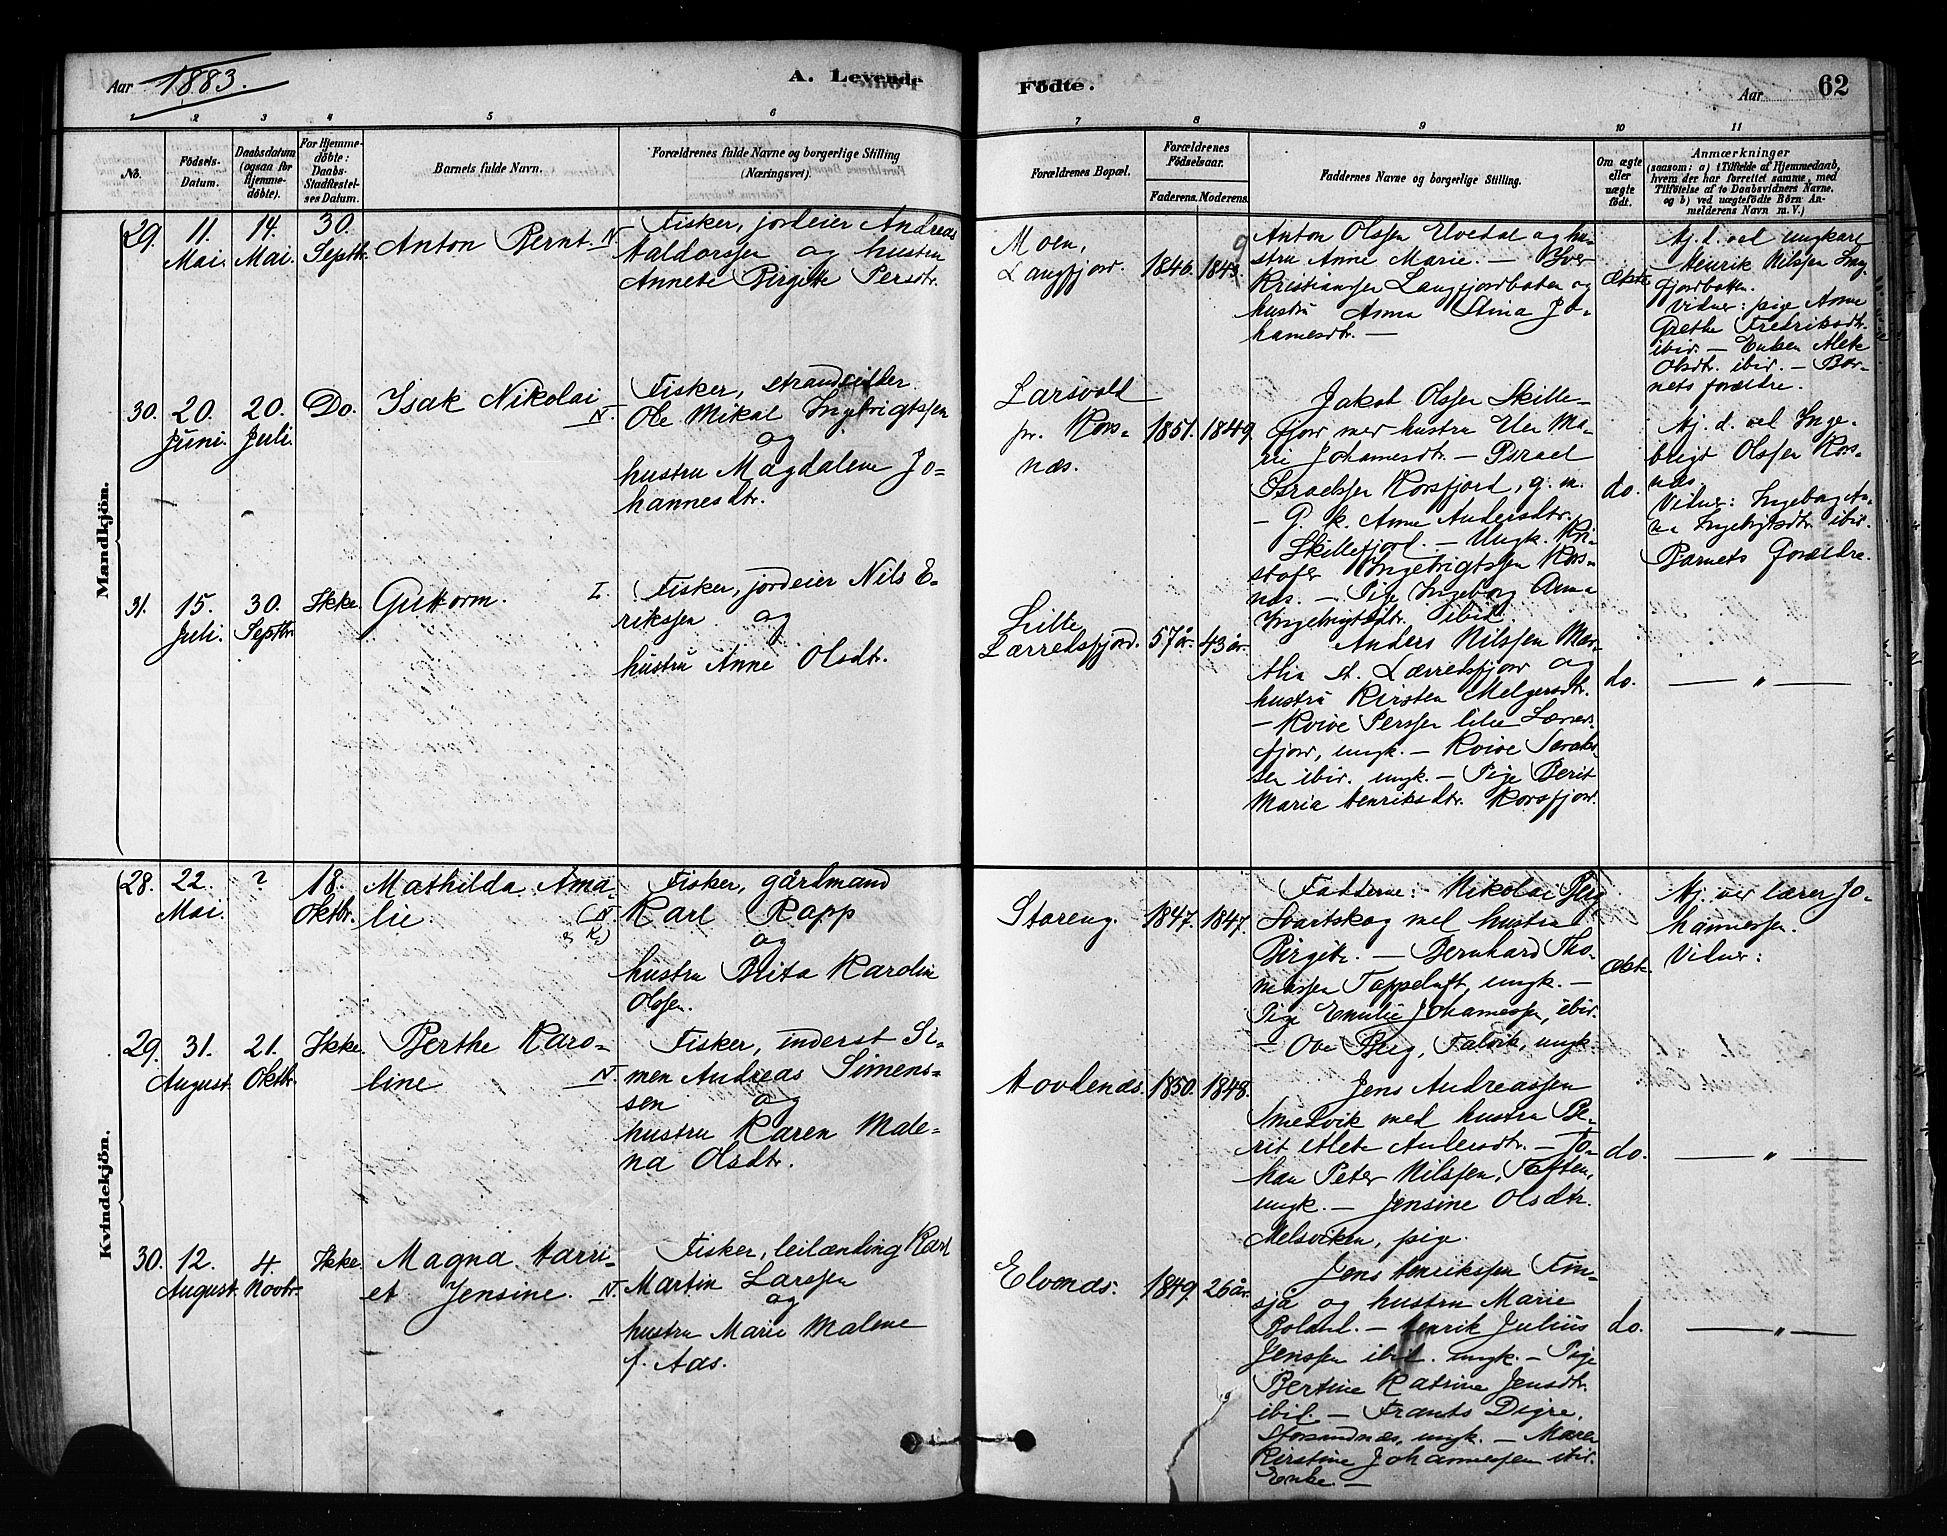 Aar 1883.
A. Levende
Födte.
Aar
62
1 2 3 4 5 6 7 8 9 10 11
No.
Födsels-
Datum.
Daabsdatum
(ogsaa for
Hjemme-
döbte).
For Hjemme-
döbte:
Daabs-
Stadfæstel-
ses Datum.
Barnets fulde Navn.
Forældrenes fulde Navne og borgerlige Stilling
(Næringsvei).
Forældrenes Bopæl.
Forældrenes
Födselsaar.
Faderens. Moderens.
Faddernes Navne og borgerlige Stilling.
Om ægte
eller
uægte
födt.
Anmærkninger
(saasom: a) i Tilfælde af Hjemmedaab,
hvem der har forrettet samme, med
Tilföielse af to Daabsvidners Navne.
og b) ved uægtefödte Börn An-
melderens Navn m. V.)
Mandkjön.
29.
11.
Mai.
14.
Mai.
30.
Septbr.
Anton Bernt N.
Fisker, jordeier Andreas
Haldorssen og hustru
Annete Birgite Persdtr.
Moen,
Langfjord.
1846.
Anton Olssen Elvedal og hu-
stru Anne Marie. — Iver
Kristianssen Langfjordboten og
hustru Anna Stina Jo-
hannesdtr. —
Ægte
Hj. d. ved ungkarl
Henrik Nilssen Lang-
fjordbotten.
Vidner: pige Anne
Grethe Fredriksdtr.
ibid. — Enken Alete
Olsdtr. ibid. — Bar-
nets forældre.
30.
20.
Juni.
20.
Juli.
Do.
Isak Nikolai N.
Fisker, strandsidder
Ole Mikal Ingebrigtssen
og
hustru Magdalene Jo-
hannesdtr.
Larsvold
pr. Kors-
næs.
1851. 1849.
Jakob Olssen Skille-
fjord med hustru Elen Ma-
rie Johannesdtr. — Israel
Israelssen Korsfjord, g. m.
— G. k. Anne Andersdtr.
Skillefjord. — Ungk. Kri-
stofer Ingebrigtssen Kors-
næs. — Pige Ingeborg Anna
Ingebrigtsdtr. ibid.
do.
Hj. d. ved Inge-
brigt Olssen Kors-
næs.
Vidner: Ingeborg An-
na Ingebrigtsdtr. ibid.
Barnets forældre.
31.
15.
Juli.
30.
Septbr.
Ikke.
Guttorm. L.
Fisker, jordeier Nils E-
rikssen og
hustru Anne Olsdtr.
Lille
Lærredsfjord.
57 år. 43 år.
Anders Nilssen
Lærredsfjord og
hustru Kirsten Melgersdtr.
— Kvive Perssen lille Lærreds-
fjord, ungk. — Kvive
sen ibid. ungk. — Pige Berit
Maria Henriksdtr. Korsfjord.
do.
— " —
Kvindekjön.
28.
22.
Mai.
?
18.
Oktbr.
Mathilda Ama-
lie. (N.
& K.)
Fisker, gårdmand
Karl Rapp
og
hustru Brita Karolin
Olssen.
Storeng.
1847. 1847.
Fadderne: Nikolai Berg
Svartskog med hustru
Birgite. — Bernhard Tho-
massen Tappeluft, ungk. —
Pige Emilie Johannessen, ibid.
— Ove Berg, Talvik, ungk.
Ægte.
Hj. ved lærer Jo-
hannessen.
Vidner:
29.
31.
August.
21.
Oktbr.
Ikke.
Berthe Karo-
line N.
Fisker, inderst Si-
men Andreas Simens-
sen og
hustru Karen Male-
na Olsdtr.
Hovdenæs.
1850. 1848.
Jens Andreassen
Smedvik med hustru Be-
rit Alete Andersdtr. — Jo-
han Peter Nilssen, Toften,
ungk. — Jensine Olsdtr.
Melsviken, pige.
do.
— " —
30.
12.
August.
4.
Novbr.
Ikke.
Magna Harri-
et Jensine. N.
Fisker, leilænding Karl
Martin Larssen
og
hustru Marie Malene
f. Aas.
Elvenæs.
1849. 26 år.
Jens Henrikssen
og hustru Marie
— Henrik Julius
Jenssen ibid. ungk. — Pige
Bertine Katrine Jensdtr.
ibid. — Frants Digre,
Storsandnæs, ungk. — Maren
Kirstine Johannessen ibid.
Enke. —
do.
— " —